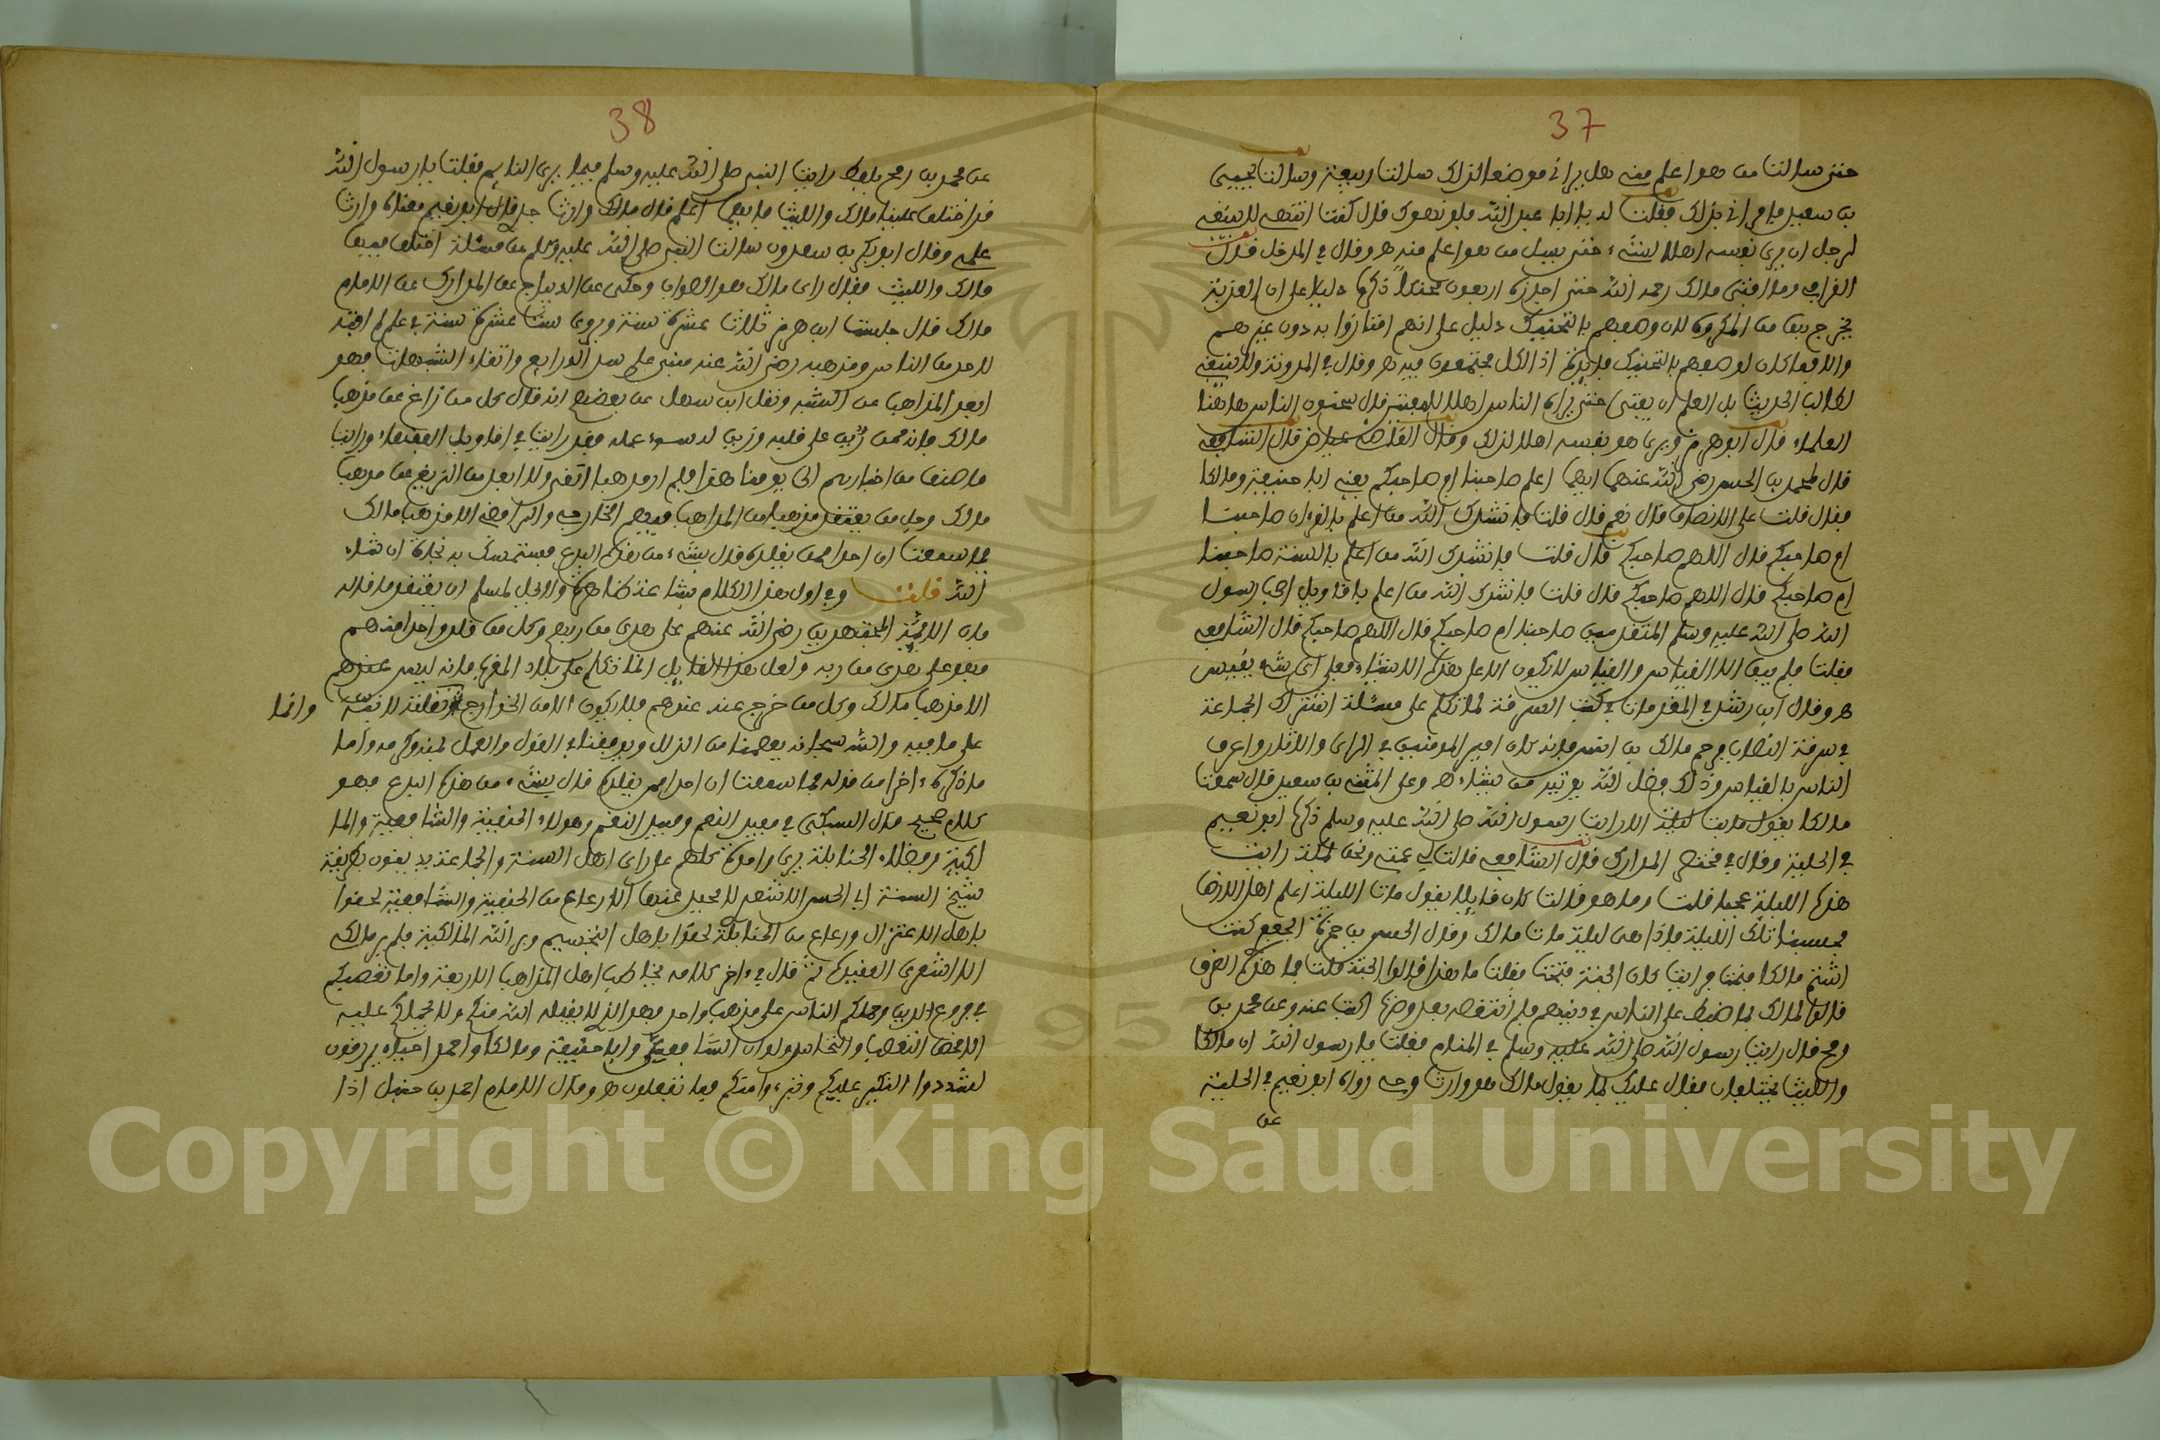 37
حتى سالت من هو اعلم مني هل يراني موضعا لذلك سالت ربيعة وسالت يحيى
بن سعيد فامراني بذلك فقلت له يا ابا عبد الله فلو نهوك قال كنت انتهي لا ينبغي
لرجل ان يرى نفسه اهلا لشيء حتى يسال من هو اعلم منه هـ وقال في المدخل قال
القرافي وما افتى مالك رحمه الله حتى اجازه اربعون محنكا
يخرج بها من المكروه لان وصفهم بالتحنيك دليل على انهم امتازوا به دون غيرهم
والا فما كان لوصفهم بالتحنيك فائدة اذ الكل مجتمعون فيه هـ وقال في المدونة ولا ينبغي
لطالب الحديث بل العلم ان يفتي حتى يراه الناس اهلا للفتوى قال سحنون الناس هاهنا
العلماء قال ابن هرمز ويرى هو نفسه اهلا لذلك وقال القاضي عياض قال الشافعي
قال محمد بن الحسن رضي الله عنهما ايهما اعلم صاحبنا ام صاحبكم يعني ابا حنيفة ومالكا
فقال قلت على الانصاف قال نعم قال قلت فانشدك الله من اعلم بالقرءان صاحبنا
ام صاحبكم قال اللهم صاحبكم قال قلت فانشدك الله من اعلم بالسنة صاحبنا
ام صاحبكم قال اللهم صاحبكم قال قلت فانشدك الله من اعلم باقاويل اصحاب رسول
الله صلى الله عليه وسلم المتقدمين صاحبنا ام صاحبكم قال اللهم صاحبكم قال الشافعي
فقلت فلم يبق الا القياس والقياس لا يكون الا على هذه الاشياء فعلى اي شيء يقيس
هـ وقال ابن رشد في المقدمات في كتاب السرقة لما تكلم على مسئلة اشتراك الجماعة
في سرقة النصاب فرحم مالك بن انس فانه كان امير المومنين في الراي والاثار واعرف
الناس بالقياس وذلك فضل الله يوتيه من يشاء هـ وعن المثنى بن سعيد قال سمعت
مالكا يقول ما بت ليلة الا رايت رسول الله صلى الله عليه وسلم ذكره ابو نعيم
في الحلية وقال في مختصر المدارك قال الشافعي قالت لي عمتي ونحن بمكة رايت
هذه الليلة عجبا قلت وما هو قالت كان قائلا يقول مات الليلة اعلم اهل الارض
فحسبنا تلك الليلة فاذا هي ليلة مات مالك وقال الحسن بن حمزة الجعفري كنت
قالوا لمالك بما ضبط على الناس في دينهم فلم انتقصه بعد وضها اكتب عنه وعن محمد بن
رمح قال رايت رسول الله صلى الله عليه وسلم في المنام فقلت يا رسول الله ان مالكا
والليث يختلفان فقال عليك بما يقول مالك هو وارث وحي رواه ابو نعيم في الحلية
عن
38
عن محمد بن رمح بلفظ رايت النبي صلى الله عليه وسلم فيما يرى النائم فقلت يا رسول الله
قد اختلف علينا مالك والليث فايهما اعلم قال مالك وارث جدي قال ابو نعيم معناه وارث
علمي وقال ابو بكر بن سعدون سالت النبي صلى الله عليه وسلم عن مسئلة اختلف فيها
مالك والليث فقال راى مالك هو الصواب وحكى عن الديباج عن المدارك عن الامام
مالك قال جلست ابن هرمز ثلاث عشرة سنة ويروى ست عشرة سنة في علم لم ابثه
لاحد من الناس ومذهبه رضي الله عنه مبني على سد الذرايع واتقاء الشبهات فهو
ابعد المذاهب عن الشبه ونقل ابن سهل عن بعضهم انه قال كل من زاغ عن مذهب
مالك فانه ممن رين على قلبه وزين له سوء عمله فقد رايت في اقاويل الفقهاء ورايت
ما صنف من اخبارهم الى يومنا هذا فلم ار مذهبا انقى ولا ابعد من الزيغ من مذهب
مالك وجل من يعتقد مذهبا من المذاهب فيهم الخارجي والرافضي الا مذهب مالك
فما سمعت ان احدا ممن يقلده قال بشيء من هذه البدع فيستمسك به نجاة ان شاء
الله قلت وفي اول هذا الكلام بشاعة ظاهرة ولا يحل لمسلم ان يعتقد ما قاله
فان الايمة المجتهدين رضي الله عنهم على هدى من ربهم وكل من قلد واحدا منهم
فهو على هدى من ربه ولعل هذا القايل انما تكلم على بلاد المغرب فانه ليس عندهم
الا مذهب مالك وكل من خرج عنه عندهم فلا يكون الا من الخوارج
وانما
على ما فيه والله سبحانه يعصمنا من الزلل ويوفقنا في القول والعمل بمنه وكرمه واما
ما ذكره اخرا من قوله فما سمعت ان احدا ممن يقلده قال بشيء من هذه البدع فهو
كلام صحيح قال السبكي في معيد النعم ومبيد النقم وهولاء الحنفية والشافعية والما
لكية وفضلاء الحنابلة يد واحدة كلهم على راي اهل السنة والجماعة يدينون بطريقة
شيخ السنة ابي الحسن الاشعري لا يحيد عنها الا رعاع من الحنفية والشافعية لحقوا
باهل الاعتزال ورعاع من الحنابلة لحقوا باهل التجسيم وبرا الله المالكية فلم ير مالكي
الا اشعري العقيدة ثم قال في ءاخر كلامه يخاطب اهل المذاهب الاربعة واما تعصبكم
في فروع الدين وحملكم الناس على مذهب واحد فهو الذي لا يقبله الله منكم ولا يحملكم عليه
الا محض التعصب والتحاسد ولو ان الشافعي وابا حنيفة ومالكا واحمد احياء يرزقون
لشددوا النكير عليكم وتبرءوا منكم فيما تفعلون هـ وقال الامام احمد بن حنبل اذا
Copyright © King Saud University